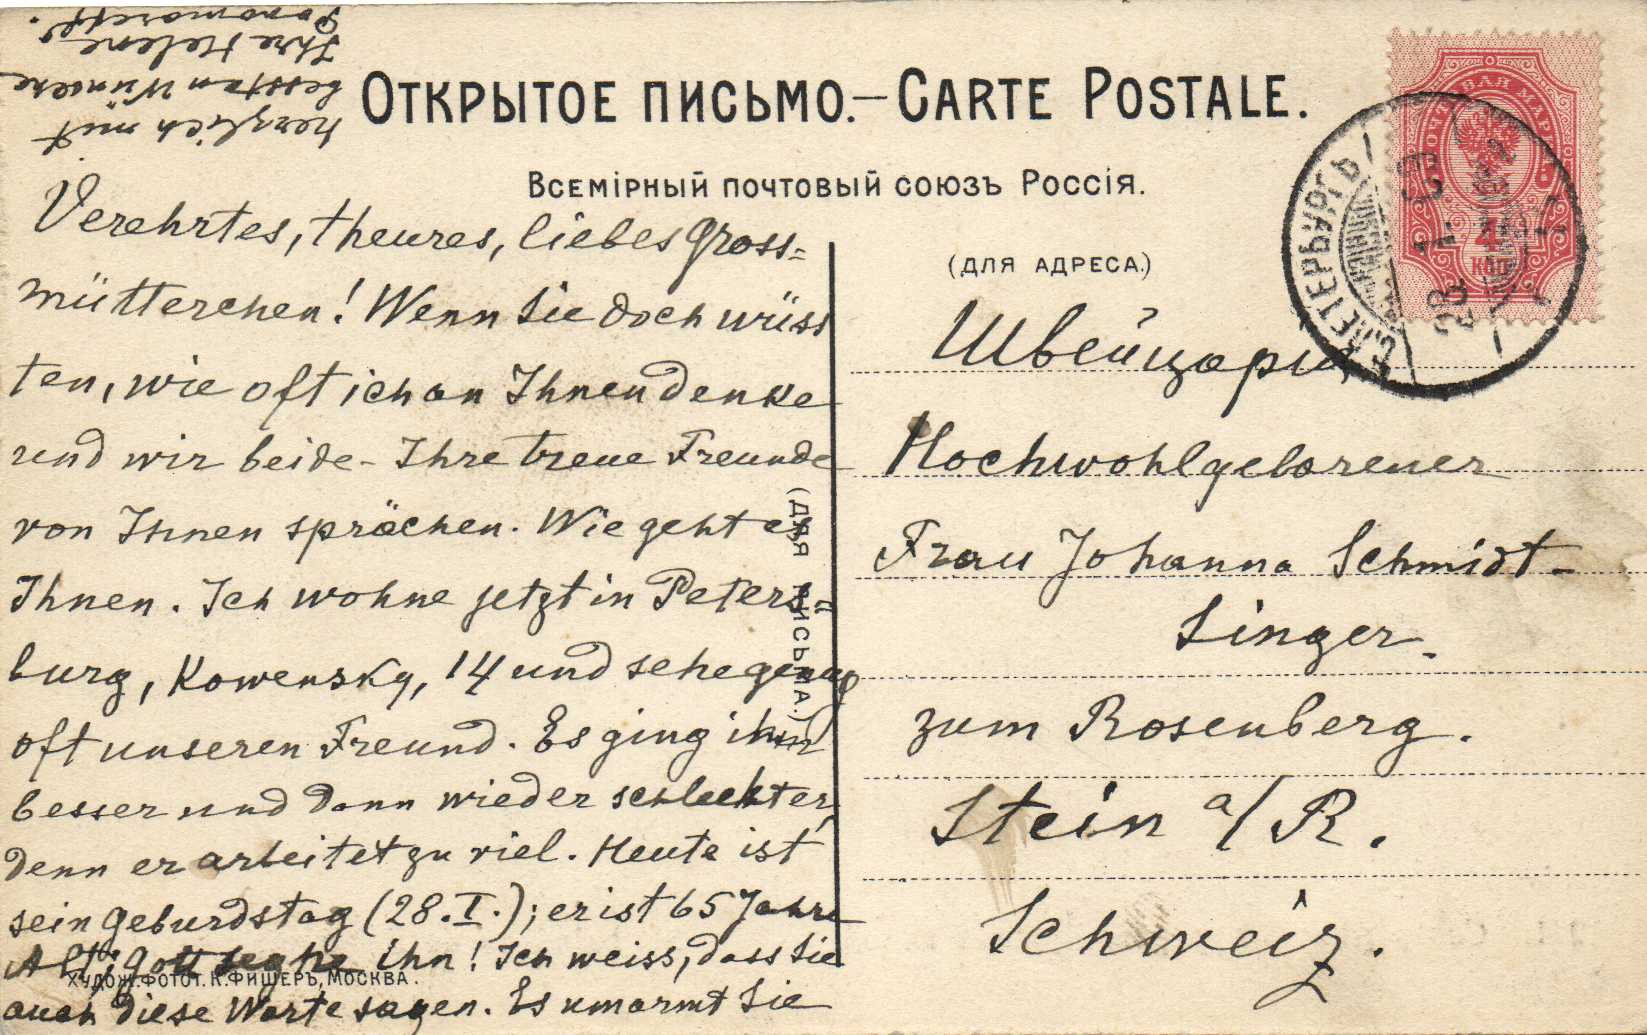 Открытое письмо.— Carte Postale.
Всемірный почтовый союзъ Россія.
(для адреса.)
(для письма.)
Verehrtes, theures, liebes Gross=
mütterchen! Wenn Sie doch wüss
ten, wie oft ich an Ihnen denke
und wir beide - Ihre treue Freunde
von Ihnen sprächen. Wie geht es
Ihnen. Ich wohne jetzt in Peters=
burg, Kowensky, 14 und sehe genug
oft unseren Freund. Es ging ihm
besser und dann wieder schlechter,
denn er arbeitet zu viel. Heute ist
sein Geburdstag (28.I.); er ist 65 Jahre
Alt; Gott seghe ihn! Ich weiss, dass Sie
auch diese Worte sagen. Es umarmt Sie
herzlich mit
besten Wünsche
Ihre Helene
Ponomareff.
Швейцарія
Hochwohlgeborener
Frau Johanna Schmidt-
Singer.
zum Rosenberg.
Stein a/R.
Schweiz.
С.ПЕТЕРБУРГЪ
28
1
ПОЧТОВАЯ МАРКА
4
КОП
Худож. фотот. К. Фишеръ, Москва.